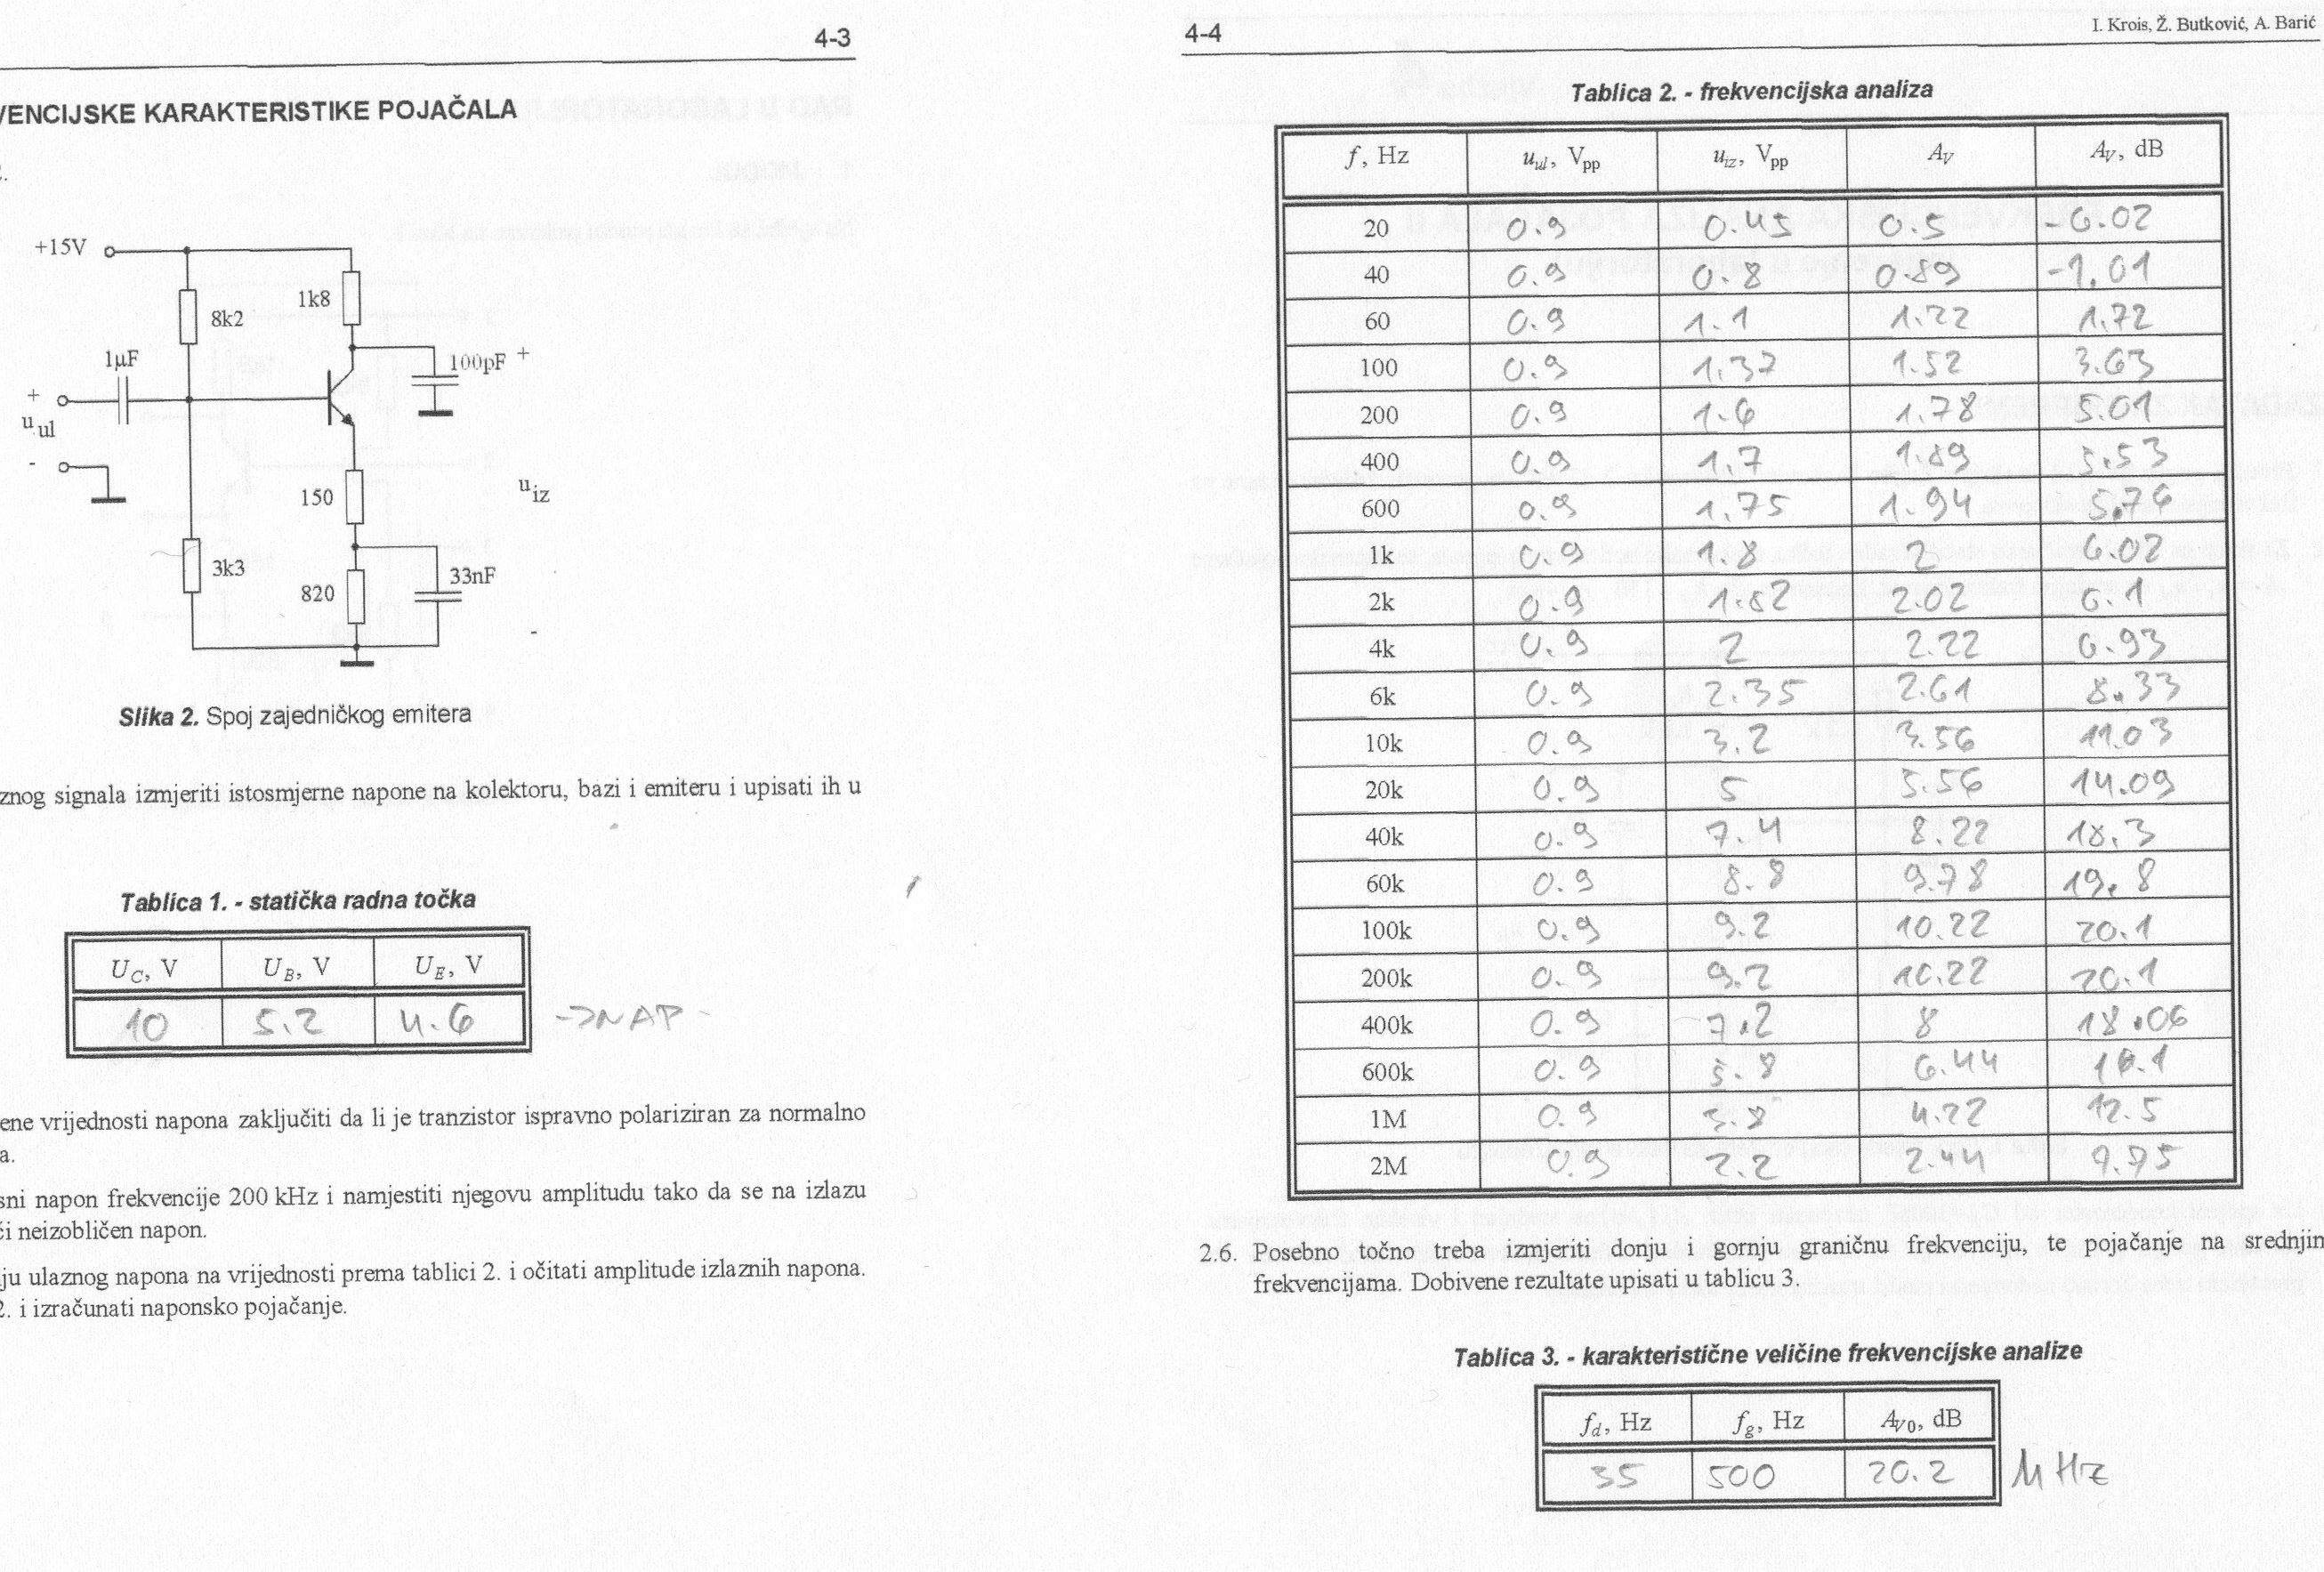 4-3
VENCIJSKE KARAKTERISTIKE POJAČALA
2.
+15V
8k2
1k8
1µF
100pF +
+
u ul
-
150
u iz
3k3
820
33nF
-
Slika 2. Spoj zajedničkog emitera
znog signala izmjeriti istosmjerne napone na kolektoru, bazi i emiteru i upisati ih u
Tablica 1. - statička radna točka
U_C, V U_B, V U_E, V
10 5.2 4.6 ->NAP
ene vrijednosti napona zaključiti da li je tranzistor ispravno polariziran za normalno
a.
sni napon frekvencije 200 kHz i namjestiti njegovu amplitudu tako da se na izlazu
ći neizobličen napon.
ju ulaznog napona na vrijednosti prema tablici 2. i očitati amplitude izlaznih napona.
2. i izračunati naponsko pojačanje.
4-4 I. Krois, Ž. Butković, A. Barić
Tablica 2. - frekvencijska analiza
f, Hz u_ul, V_pp u_iz, V_pp A_V A_V, dB
20 0.9 0.45 0.5 -6.02
40 0.9 0.8 0.89 -1.01
60 0.9 1.1 1.22 1.72
100 0.9 1.37 1.52 3.63
200 0.9 1.6 1.78 5.01
400 0.9 1.7 1.89 5.53
600 0.9 1.75 1.94 5.76
1k 0.9 1.8 2 6.02
2k 0.9 1.82 2.02 6.1
4k 0.9 2 2.22 6.93
6k 0.9 2.35 2.61 8.33
10k 0.9 3.2 3.56 11.03
20k 0.9 5 5.56 14.09
40k 0.9 7.4 8.22 18.3
60k 0.9 8.8 9.78 19.8
100k 0.9 9.2 10.22 20.1
200k 0.9 9.2 10.22 20.1
400k 0.9 7.2 8 18.06
600k 0.9 5.8 6.44 16.1
1M 0.9 3.8 4.22 12.5
2M 0.9 2.2 2.44 7.75
2.6. Posebno točno treba izmjeriti donju i gornju graničnu frekvenciju, te pojačanje na srednjim
frekvencijama. Dobivene rezultate upisati u tablicu 3.
Tablica 3. - karakteristične veličine frekvencijske analize
f_d, Hz f_g, Hz A_V0, dB
35 500 20.2 MHz